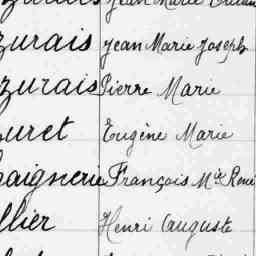 zurais Jean Marie Joseph
zurais Pierre Marie
uret Eugène Marie
aignerie François Mie René
llier Henri Auguste